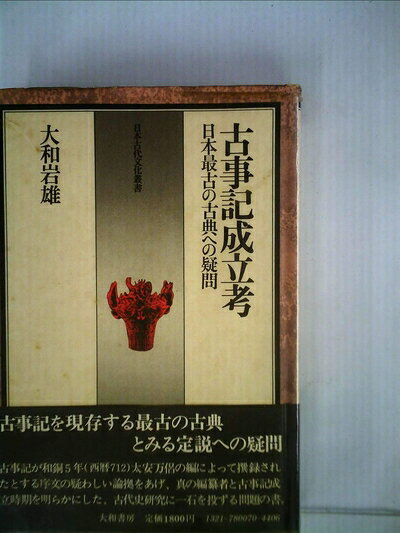 古事記成立考
日本最古の古典への疑問
日本古代文化叢書
大和岩雄
古事記を現存する最古の古典
とみる定説への疑問
古事記が和銅5年(西暦712)太安万侶の編によって撰録され
たとする序文の疑わしい論拠をあげ、真の編纂者と古事記成
立時期を明らかにした、古代史研究に一石を投ずる問題の書。
大和書房 定価1800円 1321-780070-4406